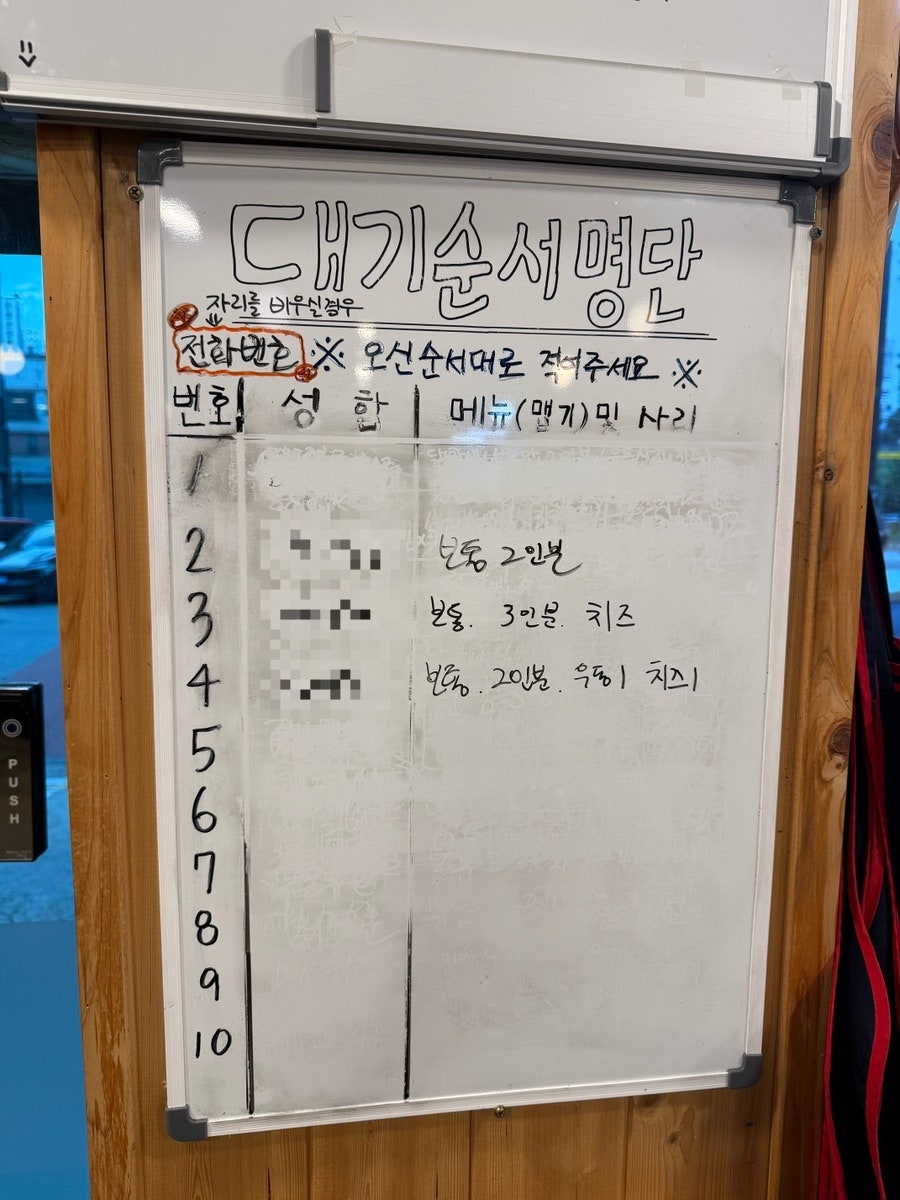 대기순서명단
자리를 비우실경우
전화번호 ※ 오신순서대로 적어주세요 ※
번호 성함 메뉴(맵기)및 사리
1
2 보통 2인분
3 보통. 3인분. 치즈
4 보통. 2인분. 우동1 치즈1
5
6
7
8
9
10
PUSH